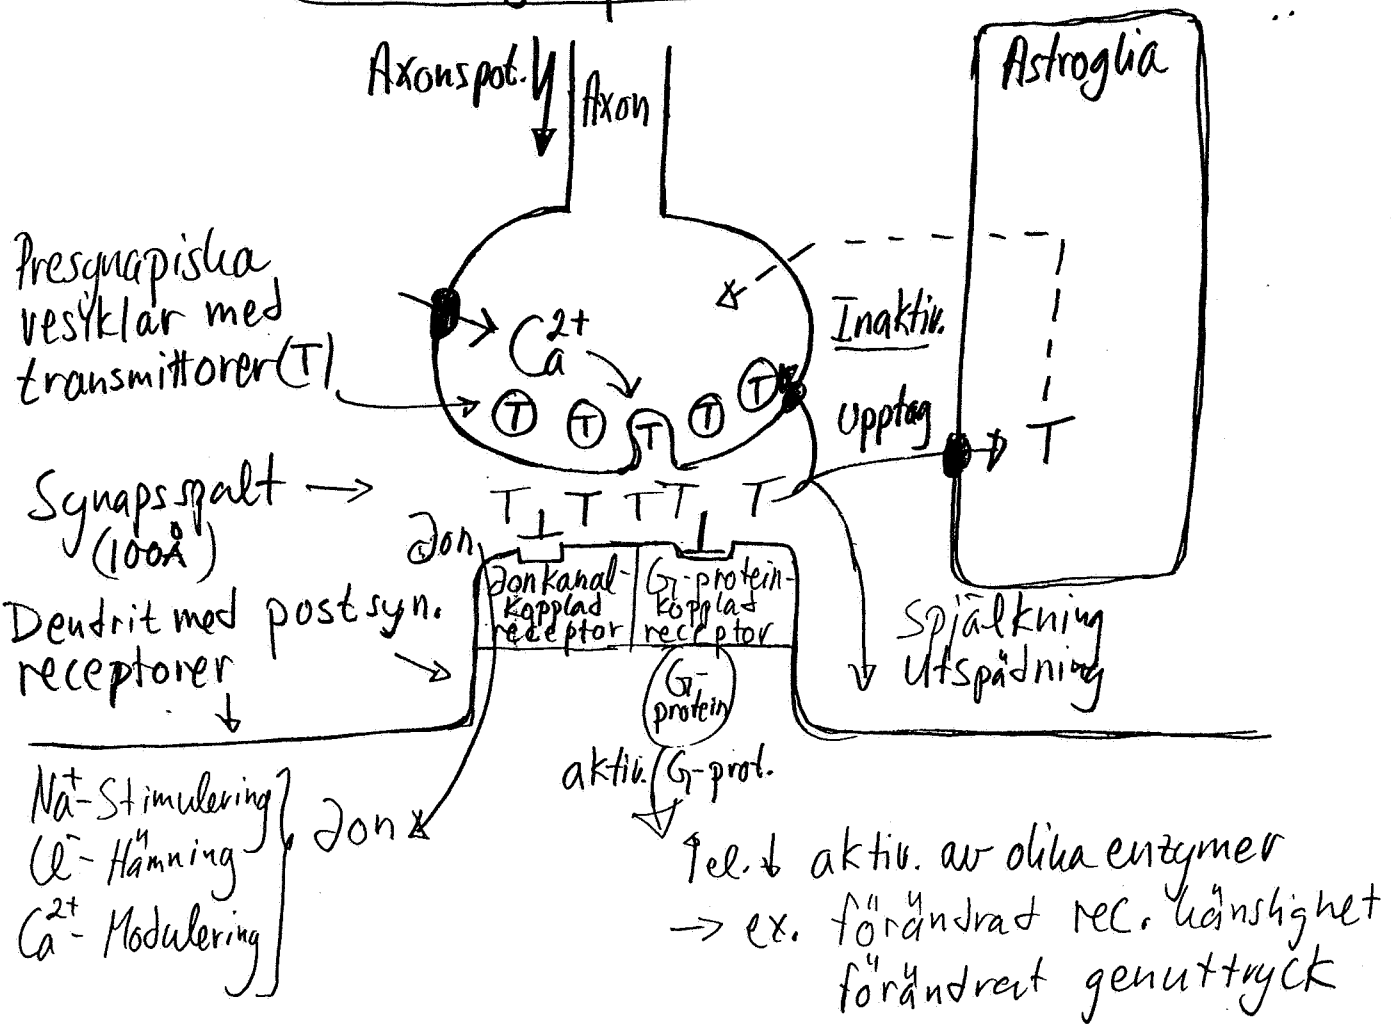 Astroglia
Axonspot.
Axon
Presynapiska
vesiklar med
transmittorer (T)
Ca2+
Inaktiv.
T T T T T
Upptag
T
Synapsspalt
(100Å)
T T T T T
Jon
Jonkanal-
kopplad
receptor
G-protein-
kopplad
receptor
Dendrit med postsyn.
receptorer
Spjälkning
Utspädning
G-
protein
aktiv. G-prot.
Na+-Stimulering
Cl--Hämning
Ca2+-Modulering
Jon
↑el.↓ aktiv. av olika enzymer
→ ex. förändrad rec. känslighet
förändrat genuttryck